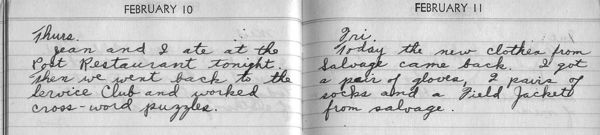 FEBRUARY 10
Thurs.
Jean and I ate at the
Post Restaurant tonight.
Then we went back to the
Service Club and worked
cross-word puzzles.
FEBRUARY 11
Fri.
Today the new clothes from
salvage came back. I got
a pair of gloves, 2 pairs of
socks and a Field Jacket
from salvage.